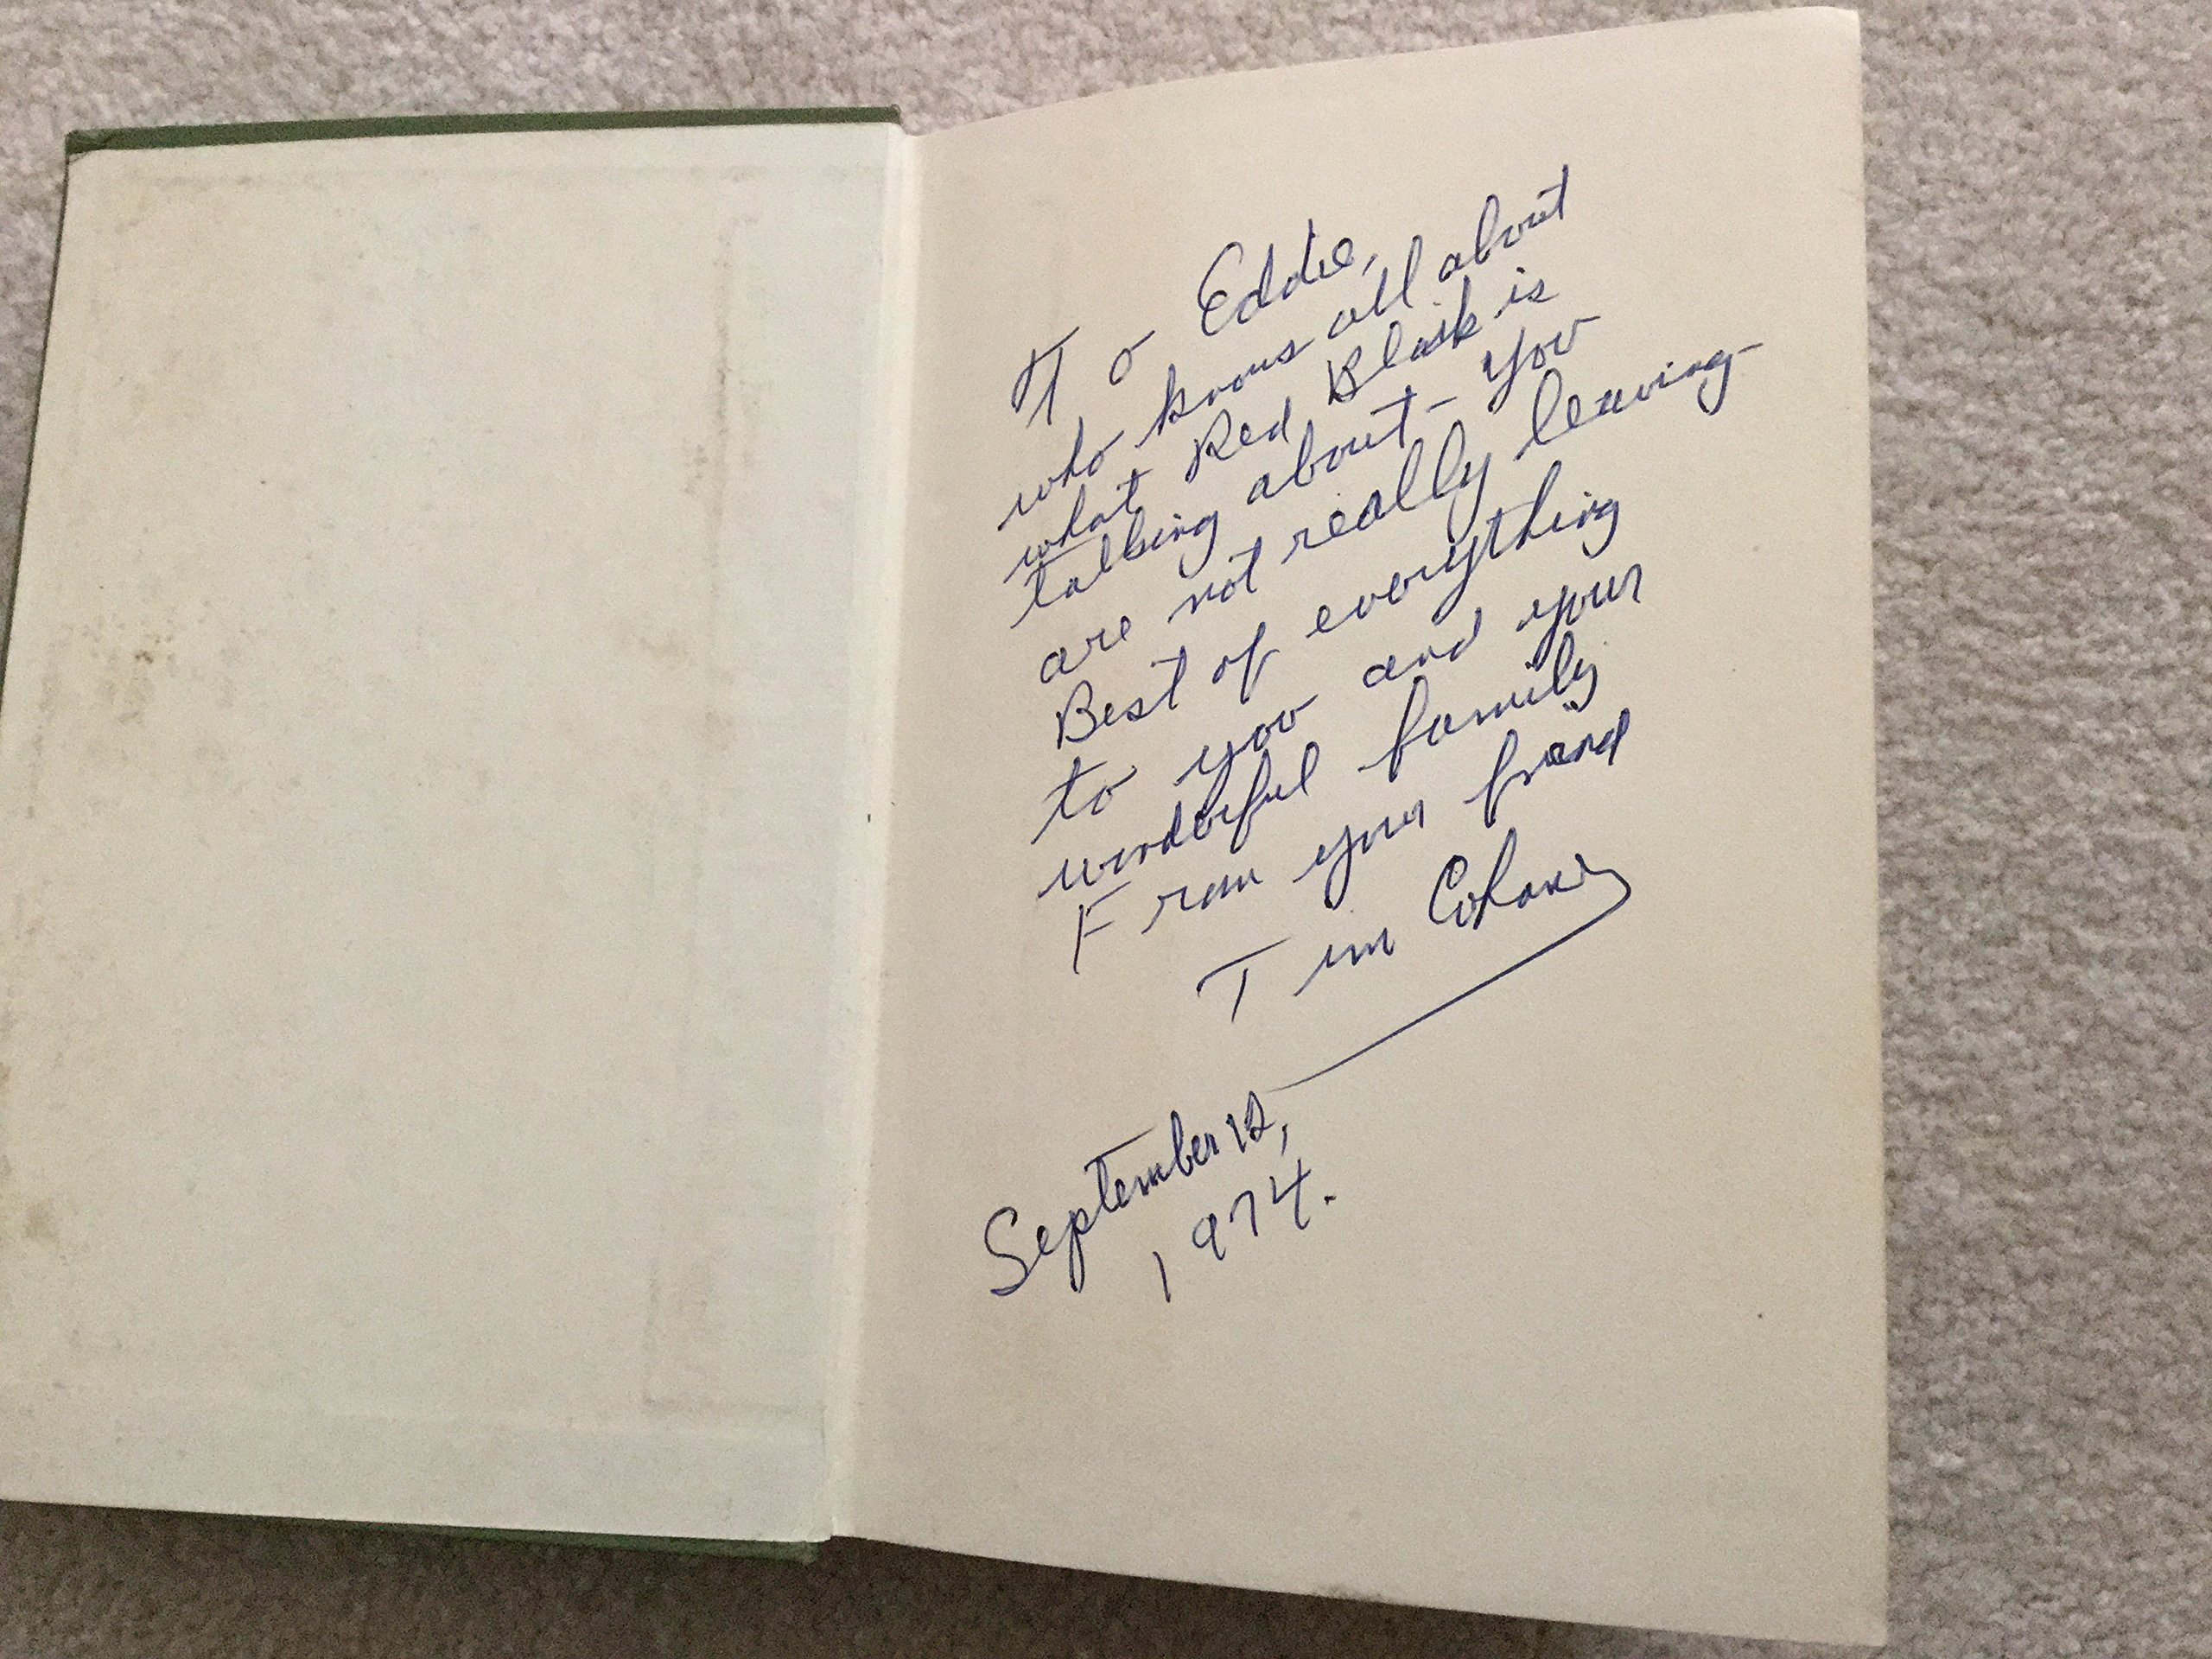 To Eddie,
who knows all about
what Red Blaik is
talking about - you
are not really leaving -
Best of everything
to you and your
wonderful family
From your friend
Tim Cohane
September 12,
1974.